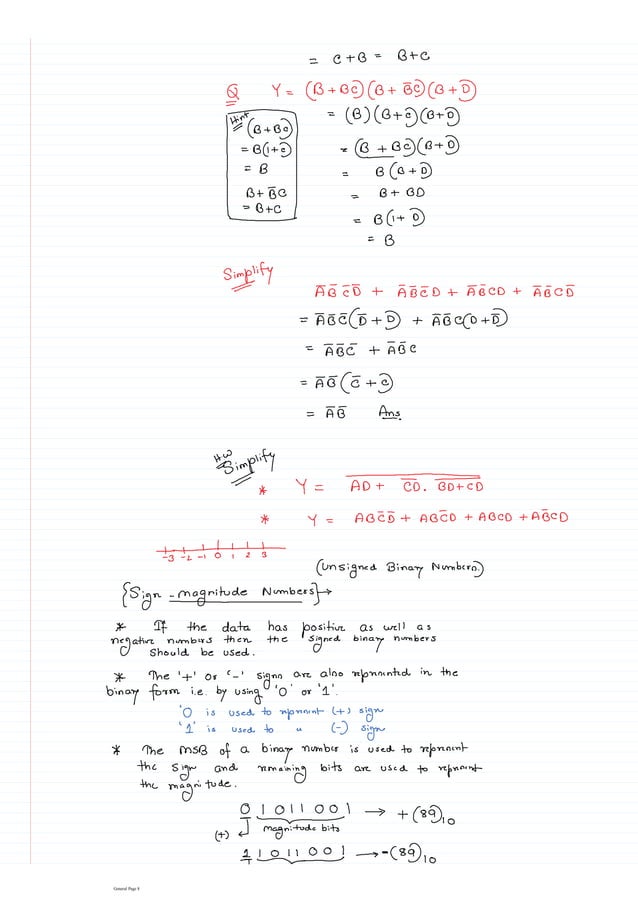 = C+B = B+C
Q Y = (B+BC)(B+B̅C)(B+D)
Hint
(B+BC)
= B(1+C)
= B
B+B̅C
= B+C
= (B)(B+C)(B+D)
= (B+BC)(B+D)
= B(B+D)
= B+BD
= B(1+D)
= B
Simplify
A̅B̅C̅D̅ + A̅B̅C̅D + A̅B̅CD + A̅B̅CD̅
= A̅B̅C̅(D̅+D) + A̅B̅C(D+D̅)
= A̅B̅C̅ + A̅B̅C
= A̅B̅(C̅+C)
= A̅B̅ Ans.
HW
Simplify
* Y = AD + CD . BD+CD
* Y = ABC̅D̅ + ABC̅D + ABCD + AB̅CD
-3 -2 -1 0 1 2 3
(Unsigned Binary Numbers)
{Sign-magnitude Numbers}→
* If the data has positive as well as
negative numbers then the signed binary numbers
should be used.
* The '+' or '-' signs are also represented in the
binary form i.e. by using '0' or '1'.
'0 is used to represent (+) sign
'1' is used to " (-) sign
* The MSB of a binary number is used to represent
the sign and remaining bits are used to represent
the magnitude.
0 1 0 1 1 0 0 1 → +(89)10
(+) magnitude bits
1 1 0 1 1 0 0 1 → -(89)10
General Page 8